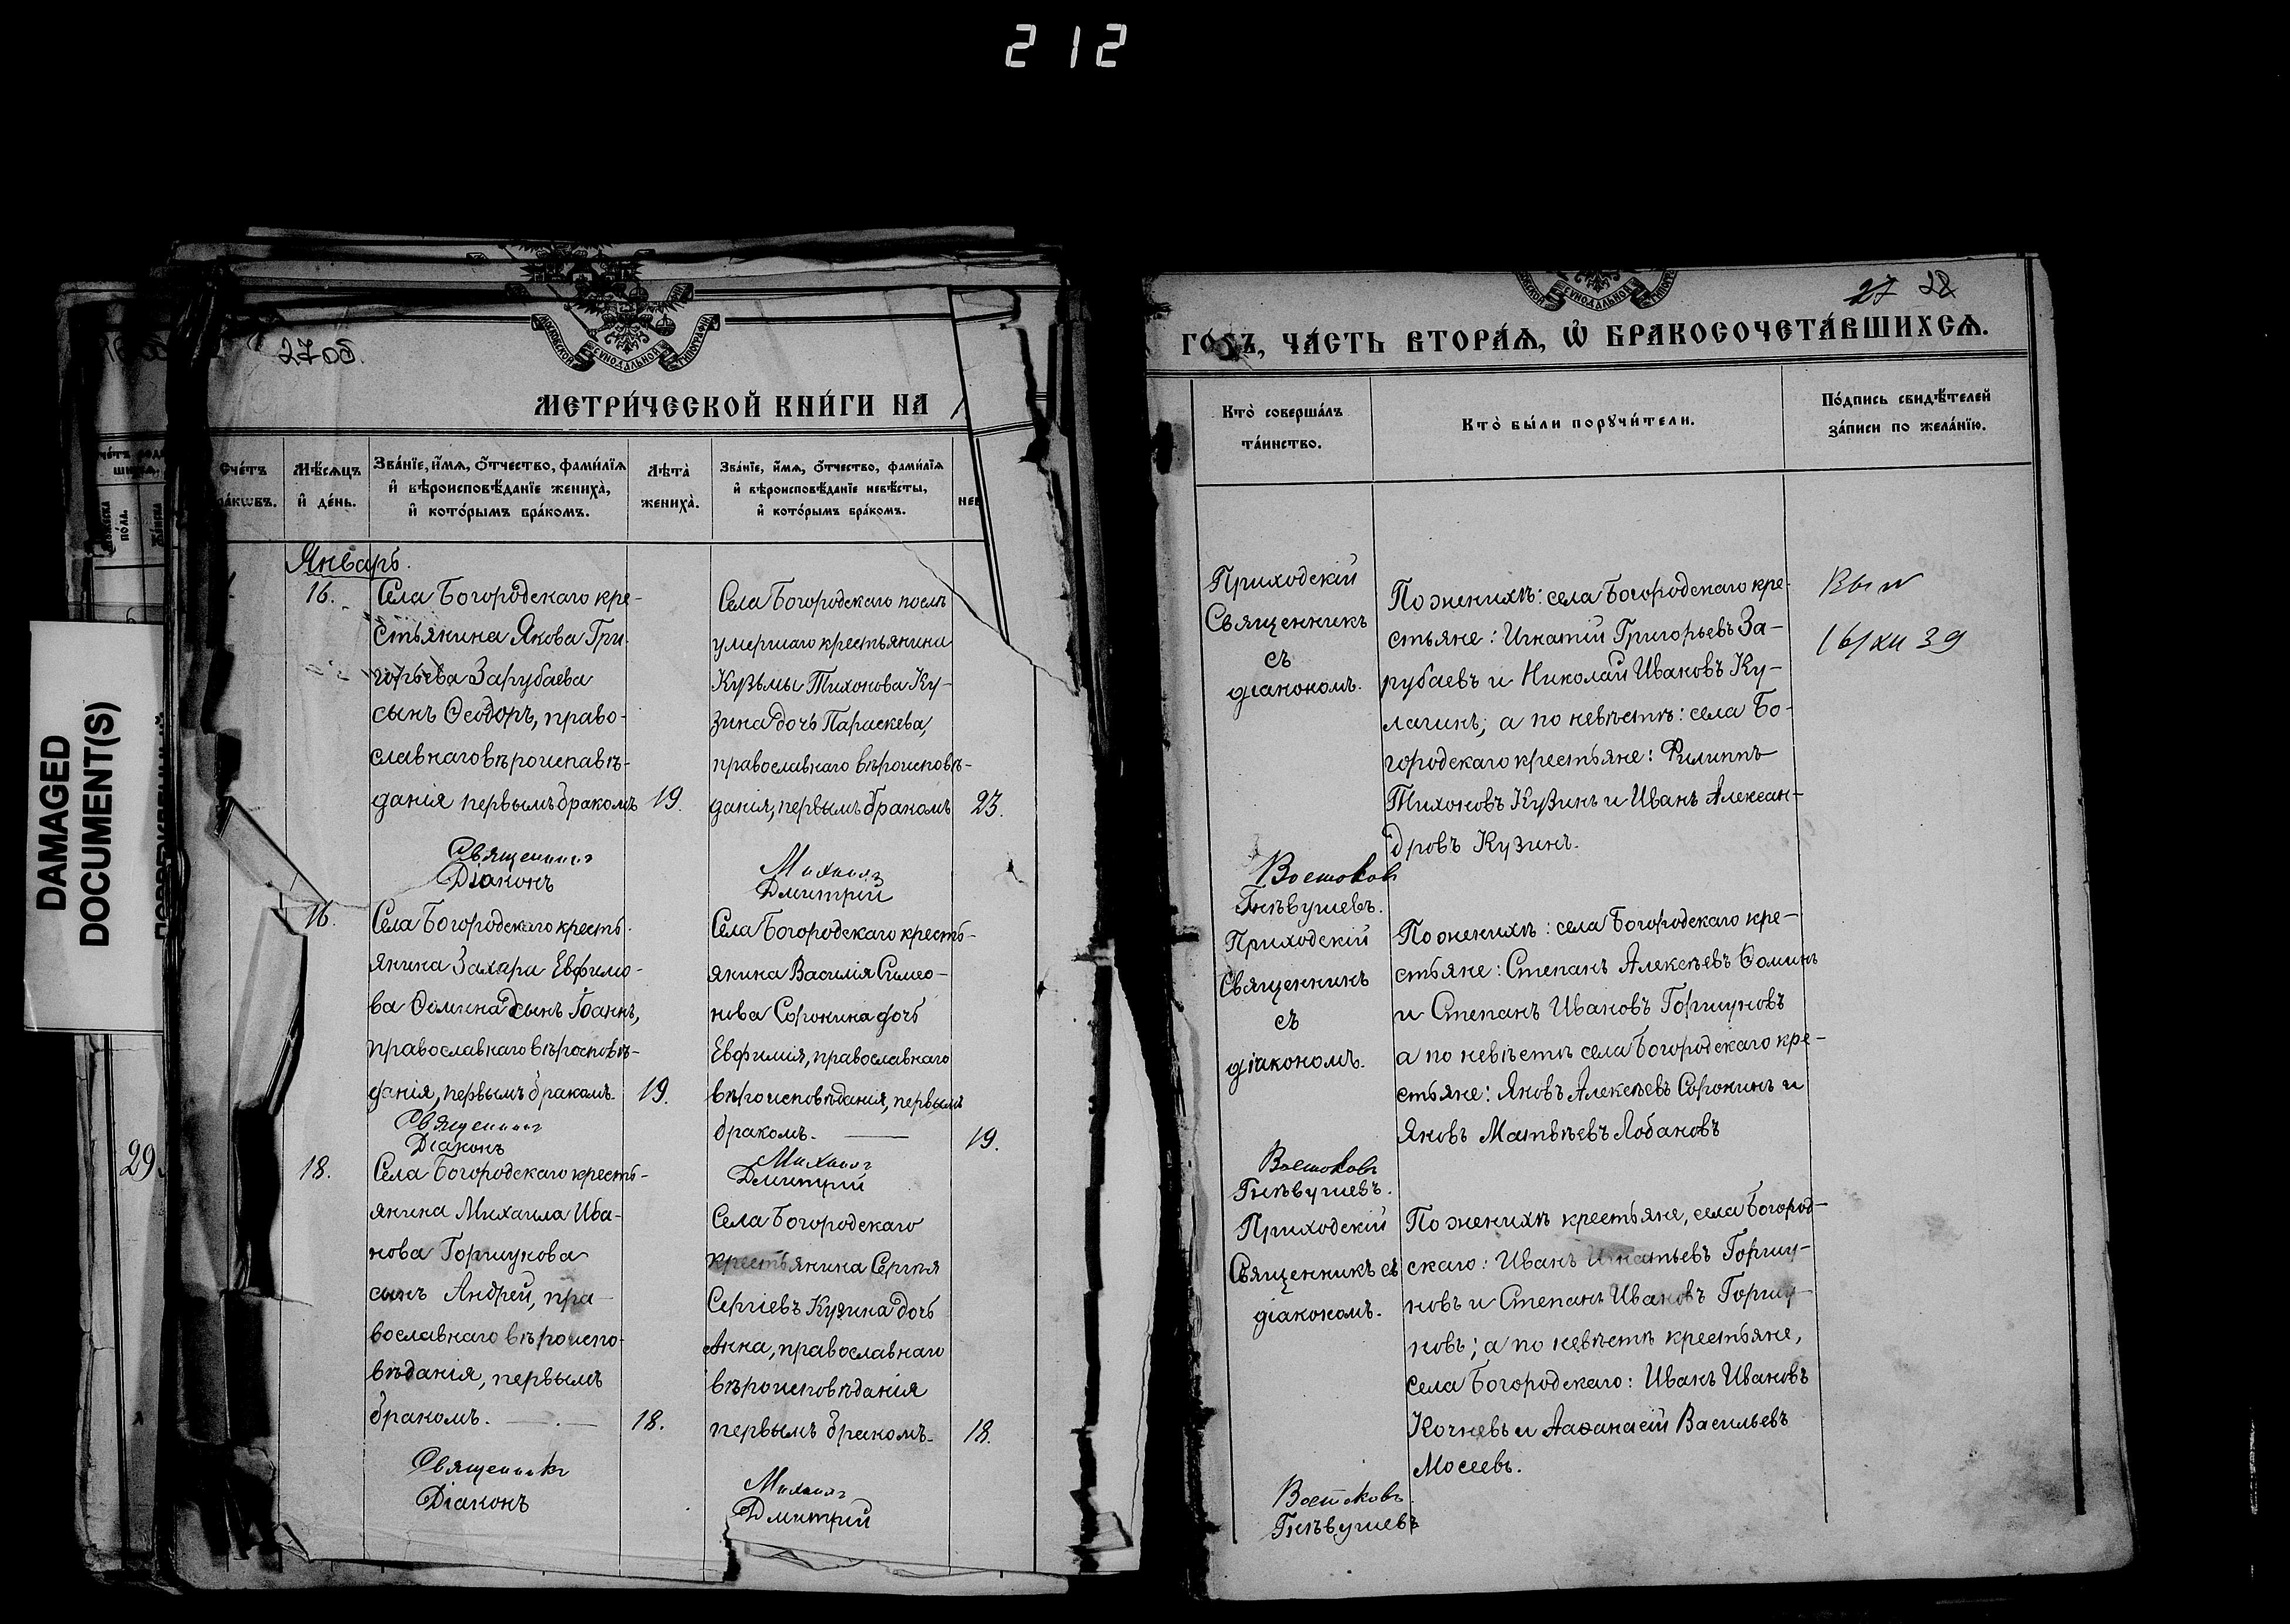 212
DAMAGED
DOCUMENT(S)
29.
2706.
МЕТРИ́ЧЕСКОЙ КНИ́ГИ НА 1
Сче́тъ
бра́кѡвъ.
Мѣ́сѧцъ
и҆ де́нь.
Зва́нїе, и҆́мѧ, ѻ҆́тчество, фами́лїѧ
и҆ вѣроисповѣ́данїе жениха̀,
и҆ кото́рымъ бра́комъ.
Лѣ́та̀
жениха̀.
Зва́нїе, и҆́мѧ, ѻ҆́тчество, фами́лїѧ
и҆ вѣроисповѣ́данїе невѣ́сты,
и҆ кото́рымъ бра́комъ.
нев
Январь.
16.
Села Богородскаго кре-
стьянина Якова Гри-
горьева Зарубаева
сынъ Ѳеодоръ, право-
славнаго вѣроисповѣ-
данія первымъ бракомъ
19.
Села Богородскаго послѣ
умершаго крестьянина
Кузьмы Тихонова Ку-
зина дочь Параскева,
православнаго вѣроисповѣ-
данія, первымъ бракомъ
23.
Священникъ Михаилъ
Діаконъ Дмитрій
16.
Села Богородскаго кресть-
янина Захара Евфимо-
ва Ѳомина сынъ Іоаннъ,
православнаго вѣроисповѣ-
данія, первымъ бракомъ.
19.
Села Богородскаго кресть-
янина Василія Симео-
нова Сорокина дочь
Евфимія, православнаго
вѣроисповѣданія, первымъ
бракомъ.
19.
Священникъ Михаилъ
Діаконъ Дмитрій
18.
Села Богородскаго кресть-
янина Михаила Ива-
нова Горшунова
сынъ Андрей, пра-
вославнаго вѣроиспо-
вѣданія, первымъ
бракомъ.
18.
Села Богородскаго
крестьянина Сергѣя
Сергіевъ Кузина дочь
Анна, православнаго
вѣроисповѣданія
первымъ бракомъ.
18.
Священникъ Михаилъ
Діаконъ Дмитрій
27 28
ГО́ДЪ, ЧА́СТЬ ВТОРА́Ѧ, Ѡ҆ БРАКОСОЧЕТА́ВШИХСѦ.
Кто̀ соверша́лъ
та́инство.
Кто̀ бы́ли порꙋчи́тели.
По́дпись свидѣ́телей
за́писи по жела́нїю.
Приходскій
Священникъ
съ
діакономъ.
По женихѣ: села Богородскаго кре-
стьяне: Игнатій Григорьевъ За-
рубаевъ и Николай Ивановъ Ку-
лагинъ; а по невѣстѣ: села Бо-
городскаго крестьяне: Филиппъ
Тихоновъ Кузинъ и Иванъ Алексан-
дровъ Кузинъ.
16/XII 39
Востоковъ
Гнѣвушевъ.
Приходскій
Священникъ
съ
діакономъ.
По женихѣ: села Богородскаго кре-
стьяне: Степанъ Алексѣевъ Ѳоминъ
и Степанъ Ивановъ Горшуновъ
а по невѣстѣ села Богородскаго кре-
стьяне: Яковъ Алексѣевъ Сорокинъ и
Яковъ Матвѣевъ Лобановъ
Востоковъ
Гнѣвушевъ.
Приходскій
Священникъ съ
діакономъ.
По женихѣ крестьяне, села Богород-
скаго: Иванъ Игнатьевъ Горшу-
новъ и Степанъ Ивановъ Горшу-
новъ; а по невѣстѣ крестьяне,
села Богородскаго: Иванъ Ивановъ
Кочневъ и Аѳанасій Васильевъ
Мосеевъ.
Востоковъ
Гнѣвушевъ